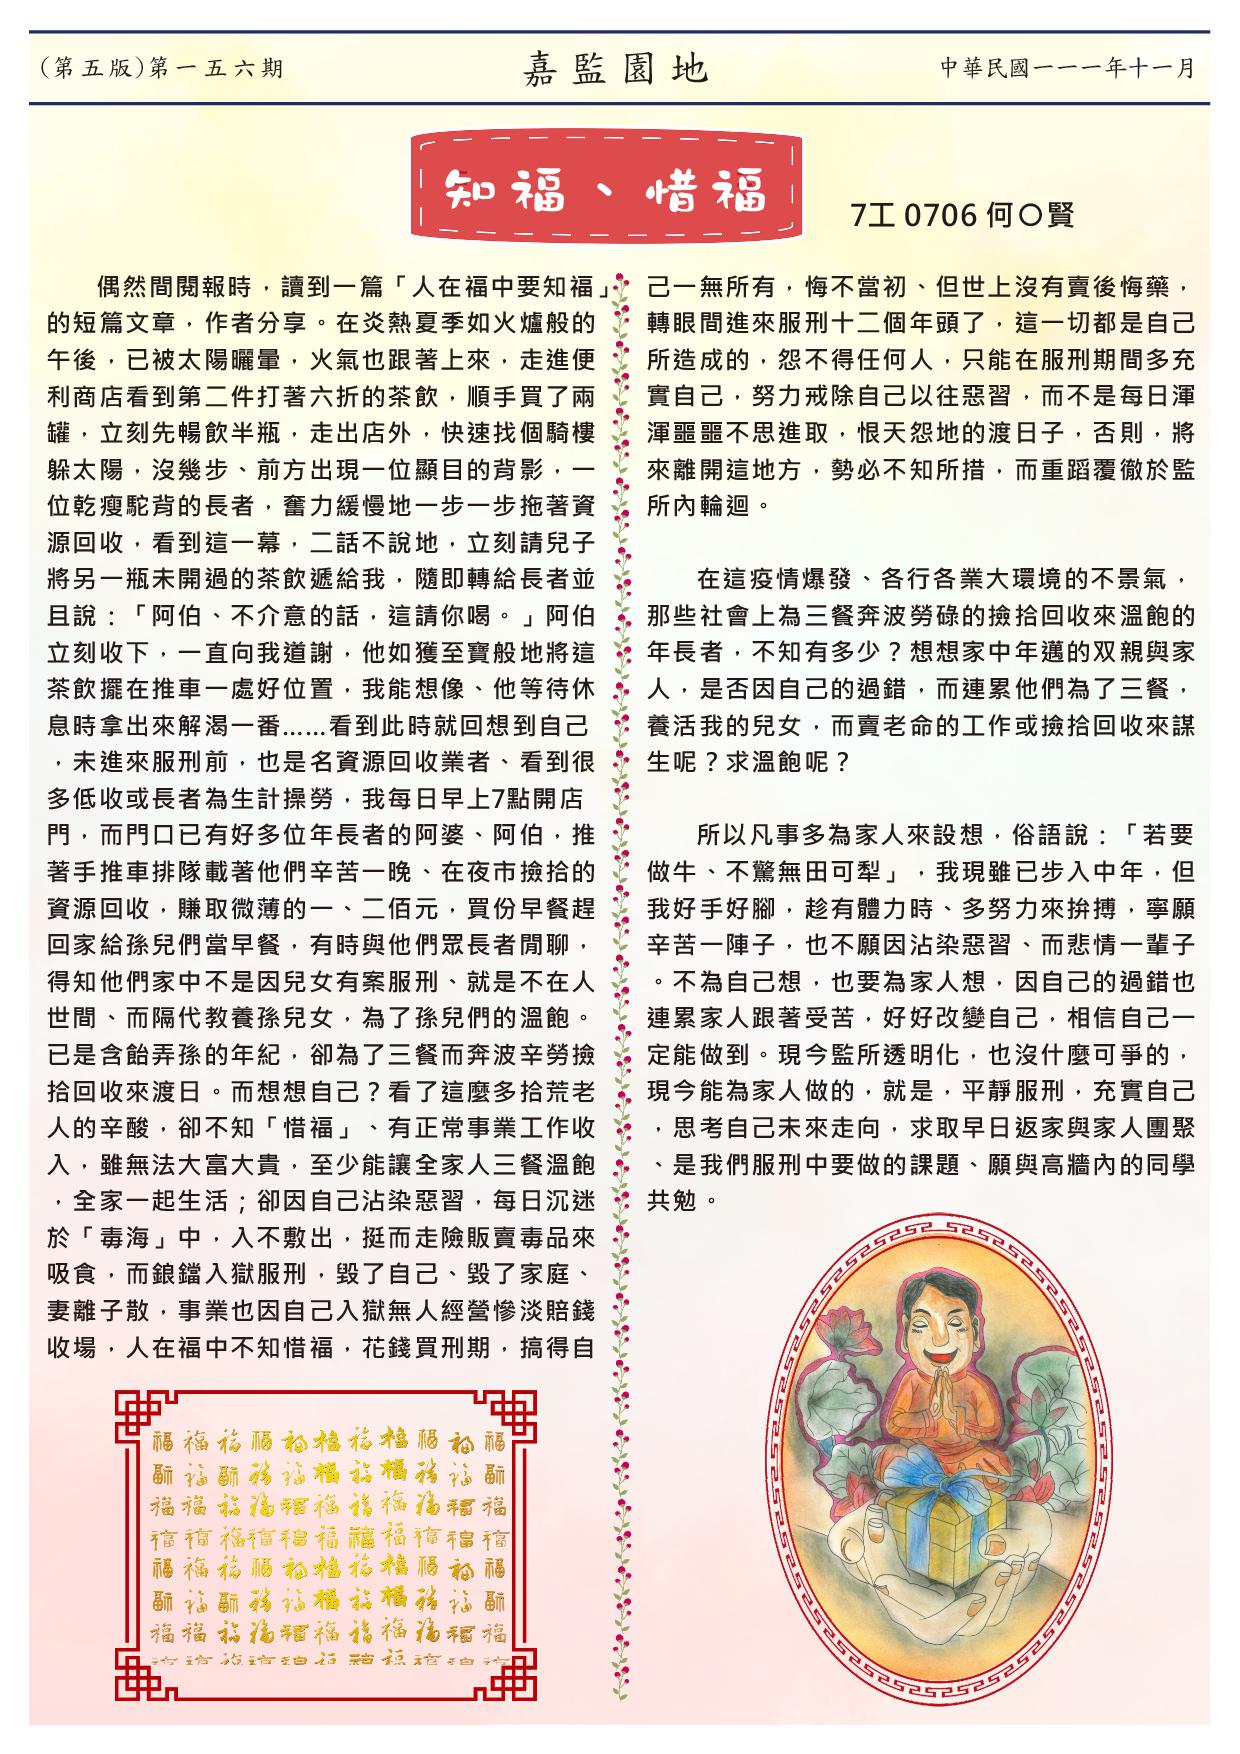 (第五版)第一五六期
嘉監園地
中華民國一一一年十一月
知福、惜福
7工 0706 何〇賢
偶然間閱報時，讀到一篇「人在福中要知福」
的短篇文章，作者分享。在炎熱夏季如火爐般的
午後，已被太陽曬暈，火氣也跟著上來，走進便
利商店看到第二件打著六折的茶飲，順手買了兩
罐，立刻先暢飲半瓶，走出店外，快速找個騎樓
躲太陽，沒幾步、前方出現一位顯目的背影，一
位乾瘦駝背的長者，奮力緩慢地一步一步拖著資
源回收，看到這一幕，二話不說地，立刻請兒子
將另一瓶未開過的茶飲遞給我，隨即轉給長者並
且說：「阿伯、不介意的話，這請你喝。」阿伯
立刻收下，一直向我道謝，他如獲至寶般地將這
茶飲擺在推車一處好位置，我能想像、他等待休
息時拿出來解渴一番……看到此時就回想到自己
，未進來服刑前，也是名資源回收業者、看到很
多低收或長者為生計操勞，我每日早上7點開店
門，而門口已有好多位年長者的阿婆、阿伯，推
著手推車排隊載著他們辛苦一晚、在夜市撿拾的
資源回收，賺取微薄的一、二佰元，買份早餐趕
回家給孫兒們當早餐，有時與他們眾長者閒聊，
得知他們家中不是因兒女有案服刑、就是不在人
世間、而隔代教養孫兒女，為了孫兒們的溫飽。
已是含飴弄孫的年紀，卻為了三餐而奔波辛勞撿
拾回收來渡日。而想想自己？看了這麼多拾荒老
人的辛酸，卻不知「惜福」、有正常事業工作收
入，雖無法大富大貴，至少能讓全家人三餐溫飽
，全家一起生活；卻因自己沾染惡習，每日沉迷
於「毒海」中，入不敷出，挺而走險販賣毒品來
吸食，而鋃鐺入獄服刑，毀了自己、毀了家庭、
妻離子散，事業也因自己入獄無人經營慘淡賠錢
收場，人在福中不知惜福，花錢買刑期，搞得自
己一無所有，悔不當初、但世上沒有賣後悔藥，
轉眼間進來服刑十二個年頭了，這一切都是自己
所造成的，怨不得任何人，只能在服刑期間多充
實自己，努力戒除自己以往惡習，而不是每日渾
渾噩噩不思進取，恨天怨地的渡日子，否則，將
來離開這地方，勢必不知所措，而重蹈覆徹於監
所內輪迴。
在這疫情爆發、各行各業大環境的不景氣，
那些社會上為三餐奔波勞碌的撿拾回收來溫飽的
年長者，不知有多少？想想家中年邁的双親與家
人，是否因自己的過錯，而連累他們為了三餐，
養活我的兒女，而賣老命的工作或撿拾回收來謀
生呢？求溫飽呢？
所以凡事多為家人來設想，俗語說：「若要
做牛、不驚無田可犁」，我現雖已步入中年，但
我好手好腳，趁有體力時、多努力來拚搏，寧願
辛苦一陣子，也不願因沾染惡習、而悲情一輩子
。不為自己想，也要為家人想，因自己的過錯也
連累家人跟著受苦，好好改變自己，相信自己一
定能做到。現今監所透明化，也沒什麼可爭的，
現今能為家人做的，就是，平靜服刑，充實自己
，思考自己未來走向，求取早日返家與家人團聚
、是我們服刑中要做的課題、願與高牆內的同學
共勉。
福福福福福福福福福福福
福福福福福福福福福福福
福福福福福福福福福福福
福福福福福福福福福福福
福福福福福福福福福福福
福福福福福福福福福福福
福福福福福福福福福福福